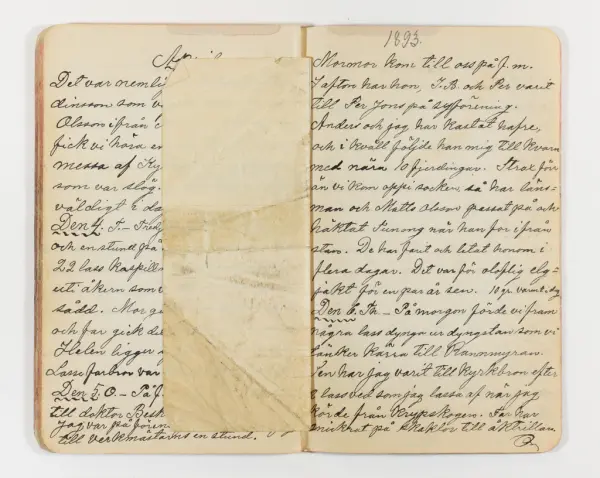 April
Det var nemli
dinsson som v
Olsson ifrån
fick vi höra en
messa af Ky
som var slög.
väldigt i da
Den 4. T. – Tredj
och en stund på
22 lass kaspill
ut i åkern som
sådd. Morg
och far gick de
Helen ligger
Lasse farbror var
Den 5. O. – På f.
till doktor Besk
Jag var på fören
till verkmästarns en stund.
1893.
Mormor kom till oss på f. m.
I afton har hon, J. B. och Per varit
till Per Jons på syförening.
Anders och jag har kastat hafre,
och i kväll följde han mig till kvarn
med nära 10 fjerdingar. Strax för
än vi kom opp i socken, så har läns=
man och Matts Olsson passat på och
häktat Tunong när han for ifrån
stan. De har farit och letat honom i
flera dagar. Det var för oloflig elg=
jakt för en par år sen. 10 gr. varmt i dag
Den 6. Th. – På morgon förde vi fram
några lass dynga ur dyngstan som vi
tänker kärra till Rammyran.
Sen har jag varit till Kyrkbron efter
8 lass ved som jag lassa af när jag
körde från Krypskogen. Far har
snickrat på skaklor till åktrillan.